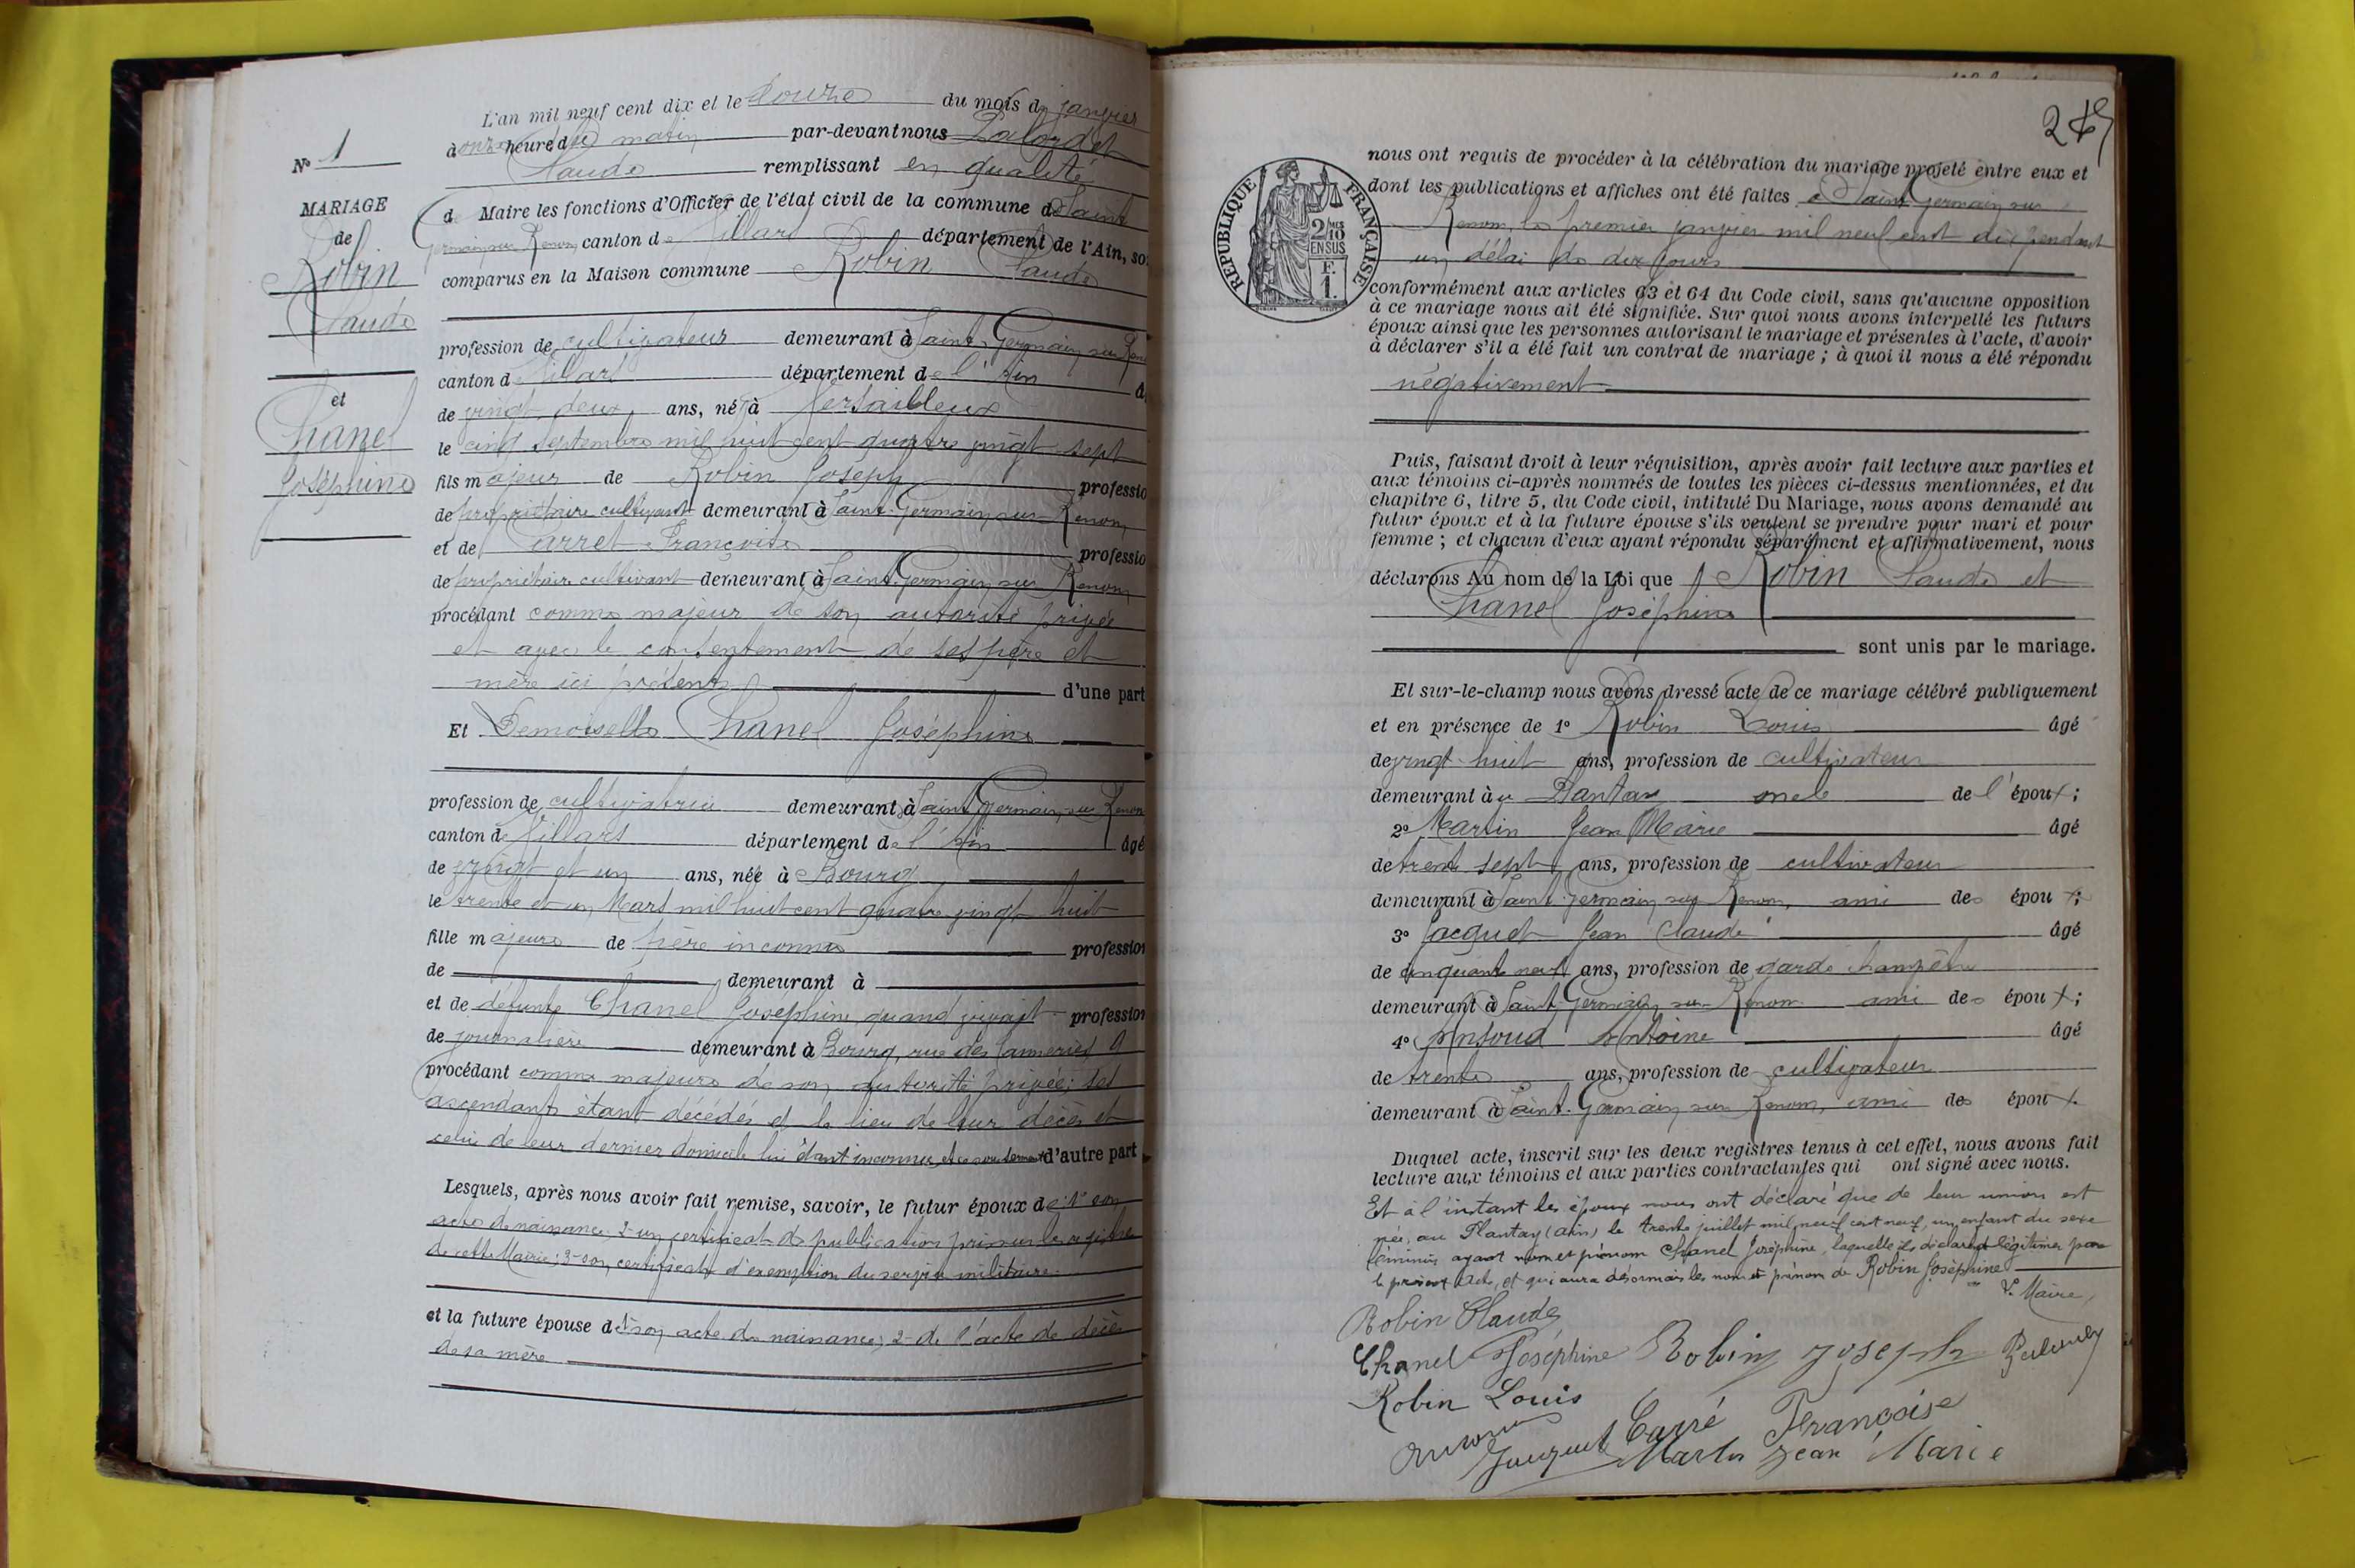 N° 1
MARIAGE
de
Robin
Claude
et
Chanel
Joséphine
L'an mil neuf cent dix et le douze du mois de janvier
à onze heure du matin par-devant nous
Claude remplissant en qualité
de Maire les fonctions d'Officier de l'état civil de la commune de Saint
Germain sur Renon canton de Villars département de l'Ain, so
comparus en la Maison commune Robin Claude
profession de cultivateur demeurant à Saint-Germain sur Reno
canton de Villars département de l'Ain â
de vingt deux ans, né à Versailleux
le cinq septembre mil huit cent quatre vingt sept
fils majeur de Robin Joseph professio
de propriétaire cultivant demeurant à Saint-Germain sur Renon
et de Carret Françoise professio
de propriétaire cultivant demeurant à Saint-Germain sur Renon
procédant comme majeur de son autorité privée
et avec le consentement de ses père et
mère ici présents d'une part
Et Demoiselle Chanel Joséphine
profession de cultivatrice demeurant à Saint Germain sur Renon
canton de Villars département de l'Ain âgé
de vingt et un ans, née à Bourg
le trente et un Mars mil huit cent quatre vingt huit
fille majeure de père inconnu profession
de demeurant à
et de défunte Chanel Joséphine quand vivait profession
de journalière demeurant à Bourg, rue des Tanneries 9
procédant comme majeure de son autorité privée; ses
ascendants étant décédés et le lieu de leur décès et
celui de leur dernier domicile lui étant inconnu, d'autre part
Lesquels, après nous avoir fait remise, savoir, le futur époux de 1° son
acte de naissance; 2° un certificat de publication pris sur le registre
de cette Mairie; 3° son certificat d'exemption du service militaire.
et la future épouse de 1° son acte de naissance; 2° de l'acte de décès
de sa mère
nous ont requis de procéder à la célébration du mariage projeté entre eux et
dont les publications et affiches ont été faites à Saint Germain sur
Renon, le premier janvier mil neuf cent dix pendant
un délai de dix jours
conformément aux articles 63 et 64 du Code civil, sans qu'aucune opposition
à ce mariage nous ait été signifiée. Sur quoi nous avons interpellé les futurs
époux ainsi que les personnes autorisant le mariage et présentes à l'acte, d'avoir
à déclarer s'il a été fait un contrat de mariage ; à quoi il nous a été répondu
négativement
RÉPUBLIQUE FRANÇAISE
2/10
EN SUS
F.
1.
Puis, faisant droit à leur réquisition, après avoir fait lecture aux parties et
aux témoins ci-après nommés de toutes les pièces ci-dessus mentionnées, et du
chapitre 6, titre 5, du Code civil, intitulé Du Mariage, nous avons demandé au
futur époux et à la future épouse s'ils veulent se prendre pour mari et pour
femme ; et chacun d'eux ayant répondu séparément et affirmativement, nous
déclarons Au nom de la Loi que Robin Claude et
Chanel Joséphine
sont unis par le mariage.
Et sur-le-champ nous avons dressé acte de ce mariage célébré publiquement
et en présence de 1° Robin Louis âgé
de vingt-huit ans, profession de cultivateur
demeurant au Plantay oncle de l'époux;
2° Martin Jean Marie âgé
de trente sept ans, profession de cultivateur
demeurant à Saint-Germain sur Renon, ami des époux;
3° Jacquet Jean Claude âgé
de cinquante neuf ans, profession de garde champêtre
demeurant à Saint-Germain sur Renon ami des époux;
4° Ansoud Antoine âgé
de trente ans, profession de cultivateur
demeurant à Saint-Germain sur Renon, ami des époux.
Duquel acte, inscrit sur les deux registres tenus à cet effet, nous avons fait
lecture aux témoins et aux parties contractantes qui ont signé avec nous.
Et à l'instant les époux nous ont déclaré que de leur union est
née, au Plantay (Ain) le trente juillet mil neuf cent neuf, un enfant du sexe
féminin ayant nom et prénom Chanel Joséphine, laquelle ils déclarent légitimer par
le présent acte, et qui aura désormais les nom et prénom de Robin Joséphine
Le Maire,
Robin Claude
Chanel Joséphine Robin Joseph
Robin Louis
Carré Françoise
Jacquet Martin Jean Marie